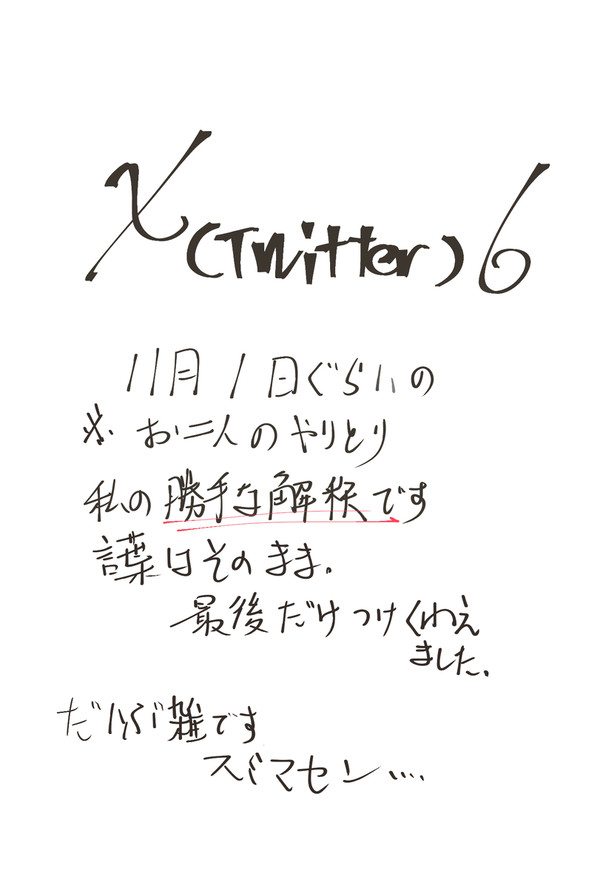 X(Twitter)6
11月1日ぐらいの
※お二人のやりとり
私の勝手な解釈です
言葉はそのまま。
最後だけつけくわえ
ました。
だいぶ雑です
スミマセン....